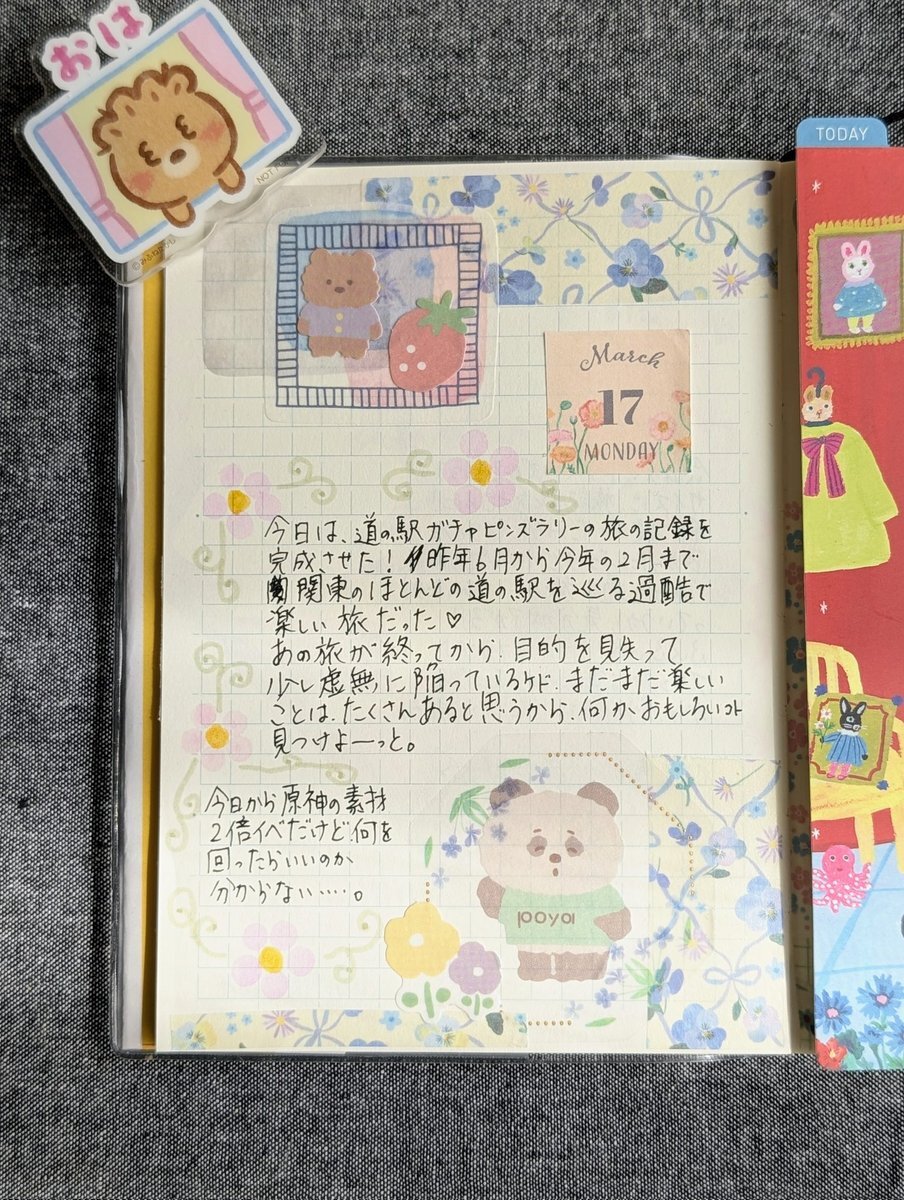 おは
TODAY
March
17
MONDAY
今日は、道の駅ガチャピンズラリーの旅の記録を
完成させた！昨年6月から今年の2月まで
関東のほとんどの道の駅を巡る過酷で
楽しい旅だった♡
あの旅が終ってから、目的を見失って
少し虚無に陥っているケド、まだまだ楽しい
ことは、たくさんあると思うから、何かおもしろいコト
見つけよーっと。
今日から原神の素材
2倍イベだけど何を
回ったらいいのか
分からない……。
poya